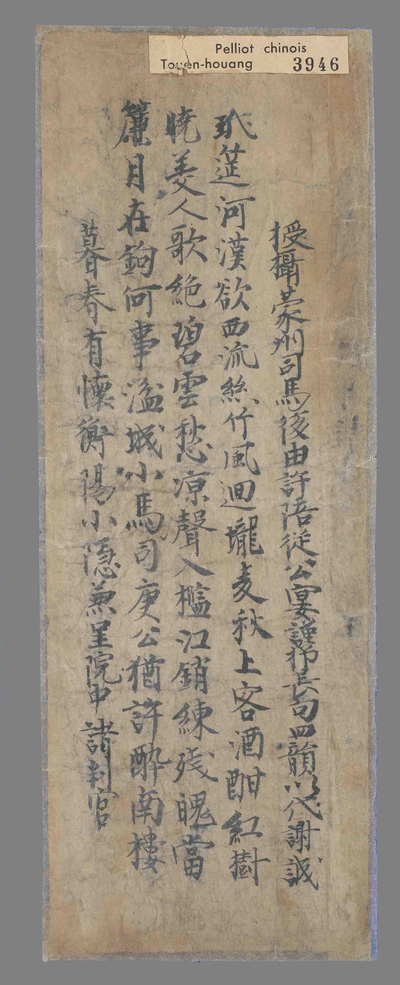 Pelliot chinois
Touen-houang 3946
授攝蒙州司馬後由許陪從公宴謹抒長句四韻以代謝誠
玳筵河漢欲西流絲竹風迴壠麦秋上客酒酣紅樹
曉美人歌絶碧雲愁凉聲入檻江銷練残魄當
簾月在鉤何事湓城小馬司庾公猶許醉南樓
暮春有懷衡陽小隱兼呈院中諸判官